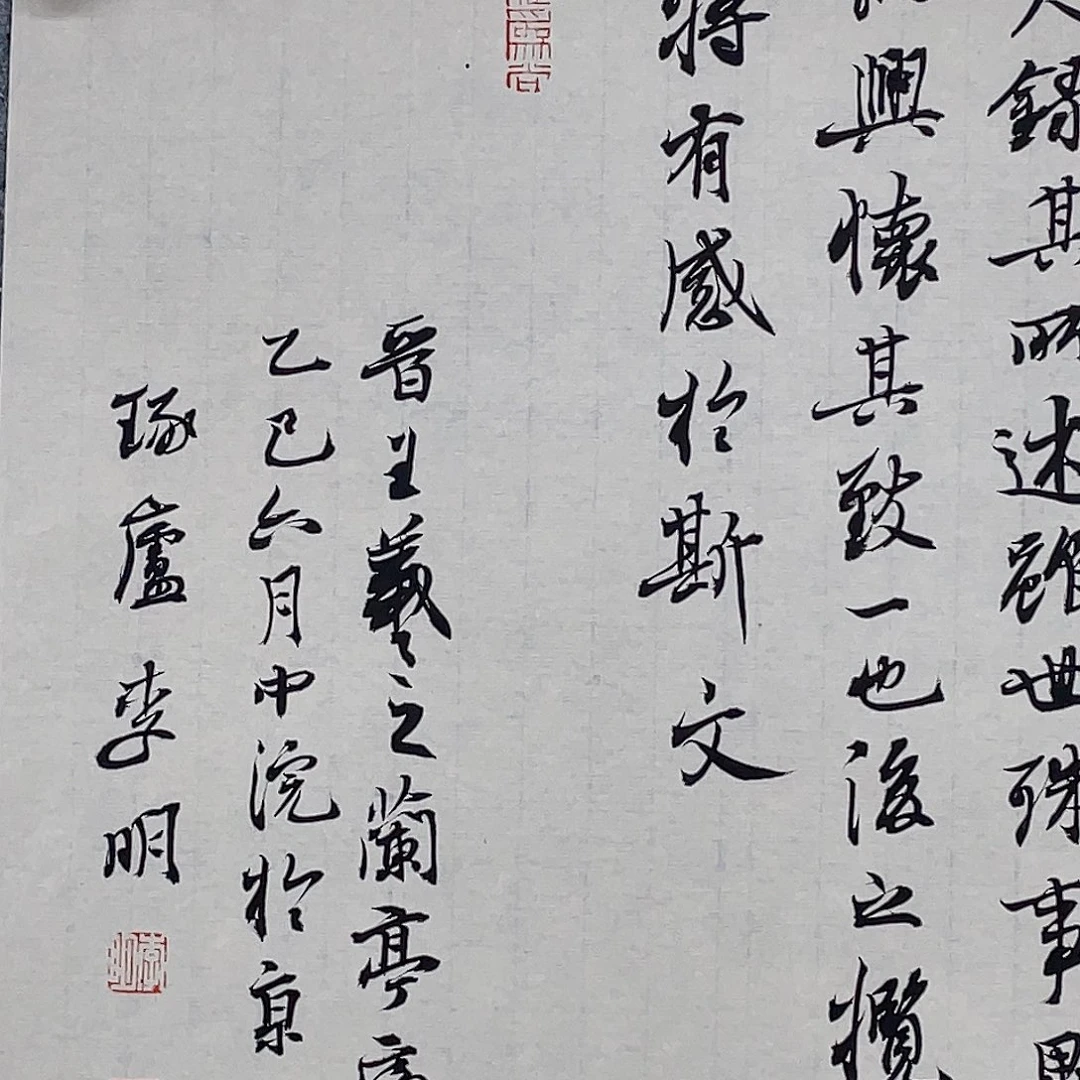 錄其所述雖世殊事
興懷其致一也後之攬
將有感於斯文
晉王羲之蘭亭序
乙巳六月中浣於京
琢廬李明
李明